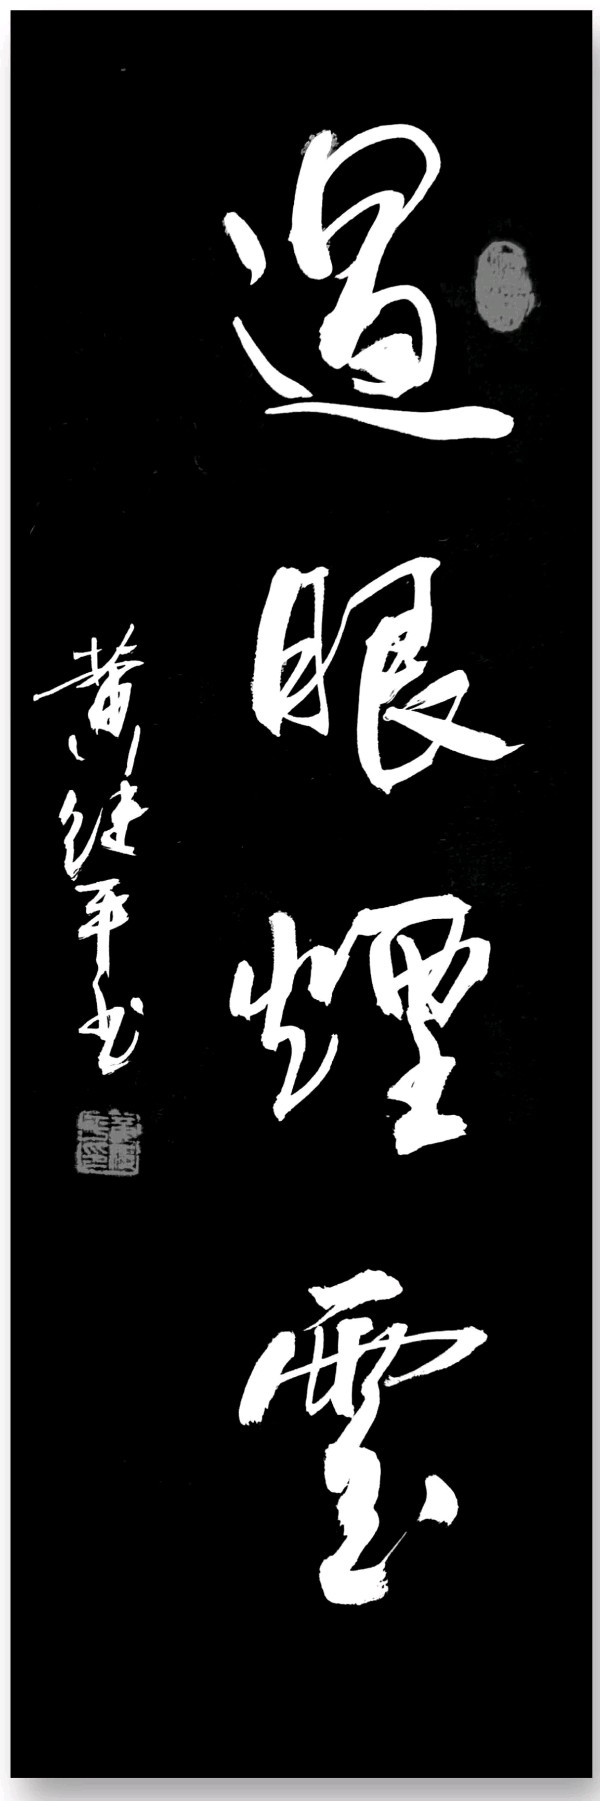 過眼煙雲
黄继平书